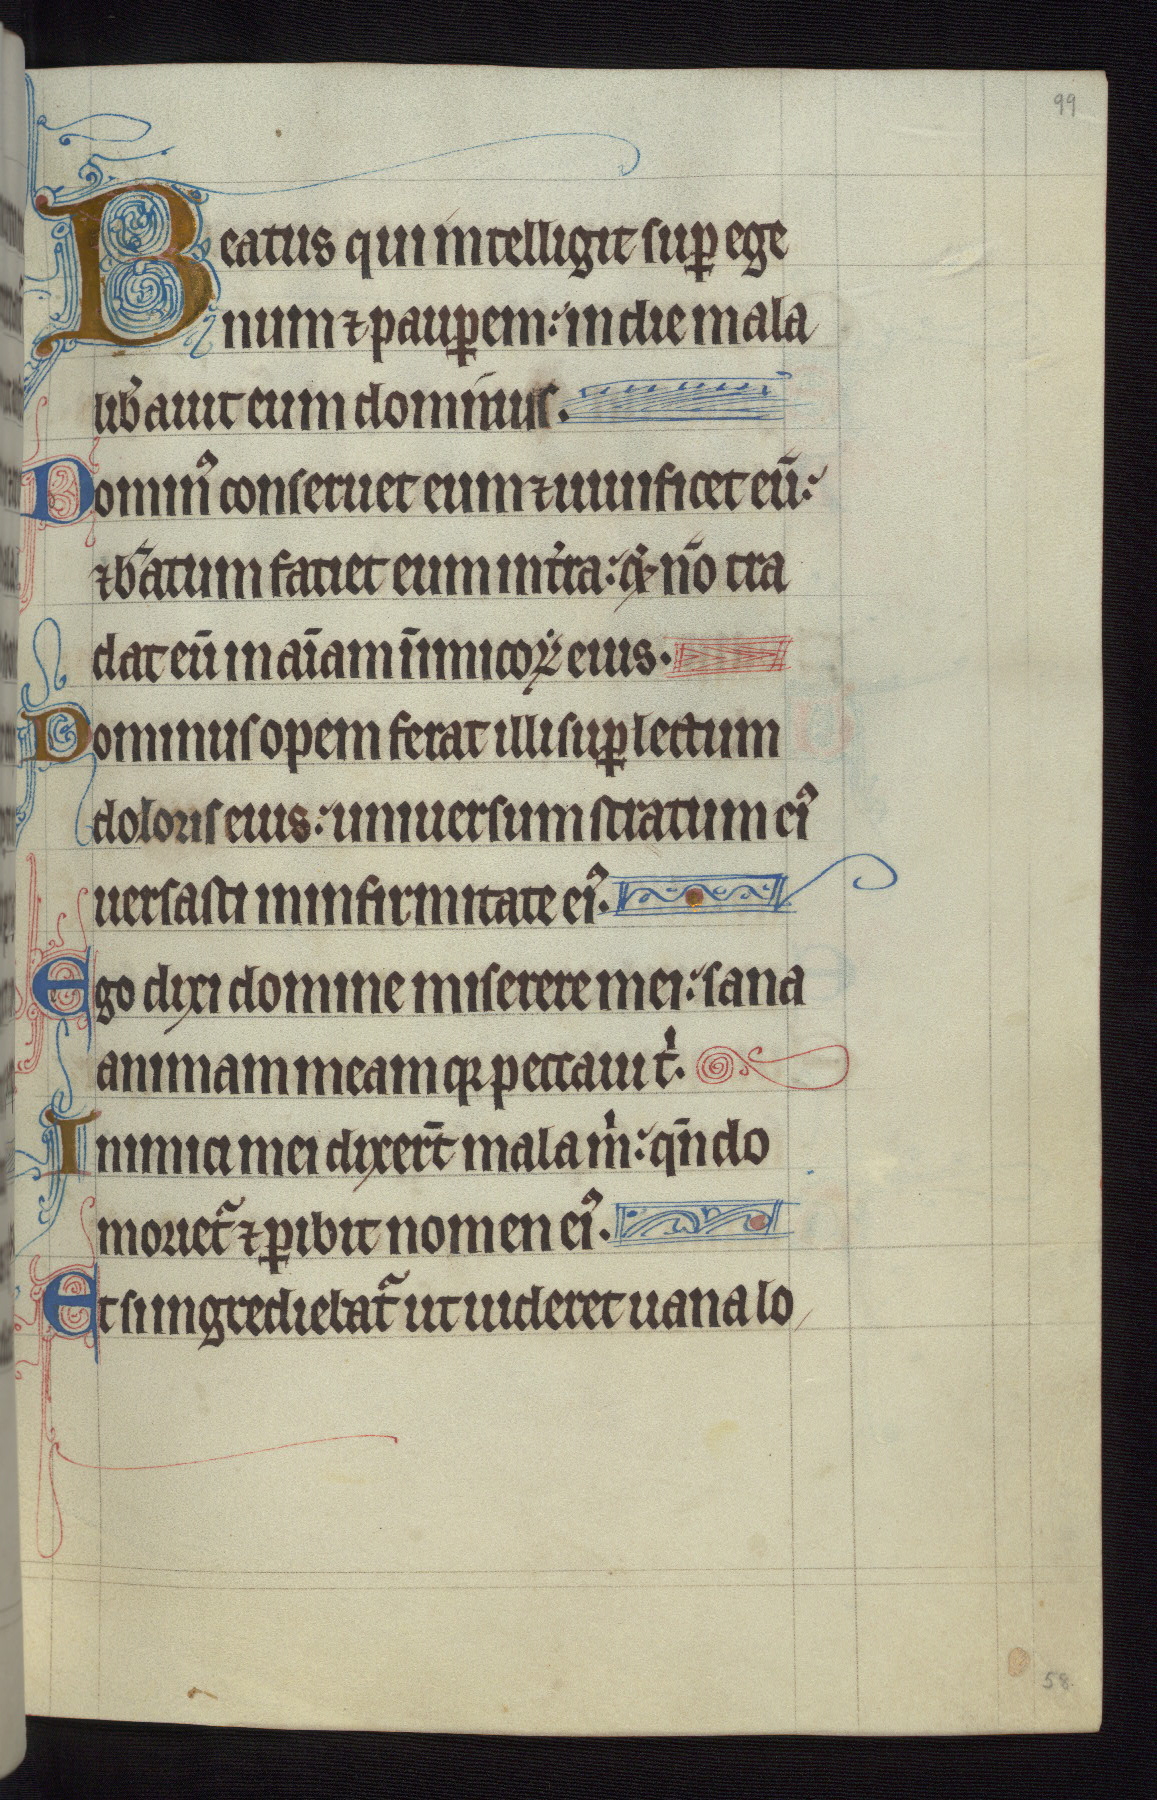 99
Beatus qui intelligit sup ege
num ⁊ paupem: in die mala
lib̾auit eum dominus.
Domin᾽ conseruet eum ⁊ uiuificet eū:
⁊ b̄atum faciet eum in t̾ra: ⁊ nōn tra
dat eū in aīam inimicoꝝ eius.
Dominus opem ferat illi sup lectum
doloris eius: uniuersum stratum ei᾽
uersasti in infirmitate ei᾽.
Ego dixi domine miserere mei: sana
animam meam qꝛ peccaui t̾.
Inimici mei dixer̄t mala m̾: qn̄do
moriet᷑ ⁊ ꝑibit nomen ei᾽.
Et si ingrediebat᷑ ut uideret uana lo
58